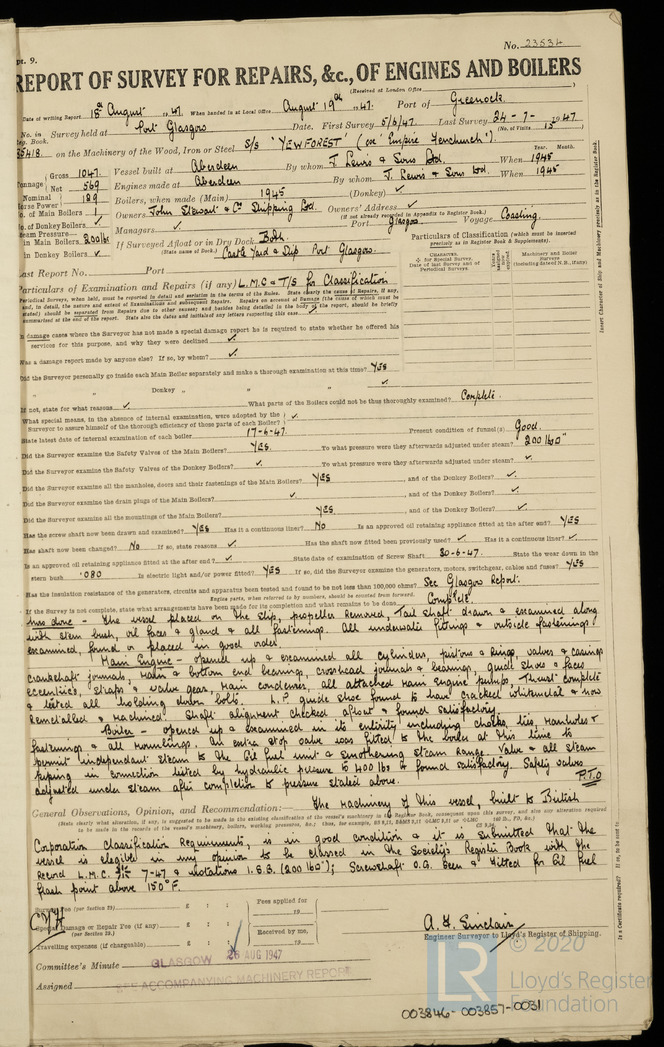 No. 23534
pt. 9.
REPORT OF SURVEY FOR REPAIRS, &c., OF ENGINES AND BOILERS
(Received at London Office
Date of writing Report 18th August 1947 When handed in at Local Office August 19th 1947. Port of Greenock.
No. in Survey held at Port Glasgow Date. First Survey 5/6/47. Last Survey 24-7-1947
eg. Book. (No. of Visits 15
35418. on the Machinery of the Wood, Iron or Steel S/S "YEWFOREST" (ex "Empire Fenchurch").
Tonnage Gross 1047. Vessel built at Aberdeen By whom J. Lewis & Sons Ltd. When 1945
Year. Month.
Net 569 Engines made at Aberdeen By whom J. Lewis & Sons Ltd. When 1945
Nominal Horse Power 189 Boilers, when made (Main) 1945 (Donkey) ✓
No. of Main Boilers 1 Owners John Stewart & Co Shipping Ltd. Owners' Address ✓
(If not already recorded in Appendix to Register Book.)
No. of Donkey Boilers ✓ Managers ✓ Port Glasgow Voyage Coasting.
Steam Pressure—
in Main Boilers 200 lb If Surveyed Afloat or in Dry Dock Both
in Donkey Boilers ✓ (State name of Dock.) Castle Yard & Slip Port Glasgow.
Particulars of Classification (which must be inserted precisely as in Register Book & Supplements).
CHARACTER. * for Special Survey. Date of last Survey and of Periodical Surveys
Machinery and Boiler Surveys (including date of N.B., if any)
Insert Character of Ship and Machinery precisely as in the Register Book.
Last Report No. Port
Particulars of Examination and Repairs (if any) L.M.C. & T/S for Classification
Periodical Surveys, when held, must be reported in detail and seriatim in the terms of the Rules. State clearly the cause of Repairs, if any,
In damage cases where the Surveyor has not made a special damage report he is required to state whether he offered his
services for this purpose, and why they were declined ✓
Was a damage report made by anyone else? If so, by whom? ✓
Did the Surveyor personally go inside each Main Boiler separately and make a thorough examination at this time? YES
" " Donkey " " " ✓
If not, state for what reasons ✓ What parts of the Boilers could not be thus thoroughly examined? Complete.
What special means, in the absence of internal examination, were adopted by the Surveyor to assure himself of the thorough efficiency of those parts of each Boiler? ✓
State latest date of internal examination of each boiler 17-6-47. Present condition of funnel(s) Good.
Did the Surveyor examine the Safety Valves of the Main Boilers? YES. To what pressure were they afterwards adjusted under steam? 200 lb□"
Did the Surveyor examine the Safety Valves of the Donkey Boilers? ✓ To what pressure were they afterwards adjusted under steam? ✓
Did the Surveyor examine all the manholes, doors and their fastenings of the Main Boilers? YES, and of the Donkey Boilers? ✓
Did the Surveyor examine the drain plugs of the Main Boilers? ✓, and of the Donkey Boilers? ✓
Did the Surveyor examine all the mountings of the Main Boilers? YES, and of the Donkey Boilers? ✓
Has the screw shaft now been drawn and examined? YES Has it a continuous liner? NO Is an approved oil retaining appliance fitted at the after end? YES
Has shaft now been changed? NO If so, state reasons ✓ Has the shaft now fitted been previously used? ✓ Has it a continuous liner? ✓
Is an approved oil retaining appliance fitted at the after end? ✓ State date of examination of Screw Shaft 30-6-47. State the wear down in the
stern bush .080 Is electric light and/or power fitted? YES If so, did the Surveyor examine the generators, motors, switchgear, cables and fuses? YES
Has the insulation resistance of the generators, circuits and apparatus been tested and found to be not less than 100,000 ohms? See Glasgow Report.
Engine parts, when referred to by numbers, should be counted from forward.
If the Survey is not complete, state what arrangements have been made for its completion and what remains to be done. Complete.
Now done - The vessel placed on the slip, propeller removed, tail shaft drawn & examined along
with stern bush, oil faces & gland & all fastenings. All underwater fittings & outside fastenings
examined, found or placed in good order.
Main Engine - opened up & examined all cylinders, pistons & rings, valves & casings
crankshaft journals, main & bottom end bearings, crosshead journals & bearings, guide shoes & faces
eccentrics, straps & valve gear, main condenser, all attached main engine pumps, Thrust complete
& tested all holding down bolts. L.P. guide shoe found to have cracked whitemetal & now
remetalled & machined. Shaft alignment checked afloat & found satisfactory.
Boiler - opened up & examined in its entirety including chocks, ties, manholes &
fastenings & all mountings. An extra stop valve was fitted to the boiler at this time to
permit independent steam to the oil fuel unit & smothering steam range. Valve & all steam
piping in connection tested by hydraulic pressure to 400 lbs & found satisfactory. Safety valves
adjusted under steam after completion to pressure stated above. P.T.O
General Observations, Opinion, and Recommendation:— The Machinery of this vessel, built to British
(State clearly what alteration, if any, is suggested to be made in the existing classification of the vessel's machinery in Register Book, consequent upon this survey, and also any alteration required
to be made in the records of the vessel's machinery, boilers, working pressures, &c.;
Corporation Classification Requirements, is in good condition & it is submitted that the
vessel is elegible in my opinion to be classed in the Society's Register Book with the
record L.M.C. 7-47 & notations 1.S.B. (200 lb□"); Screwshaft O.G. Seen & Fitted for Oil fuel
flash point above 150°F.
Survey Fee (per Section 29.) £ : : Fees applied for
19
Special Damage or Repair Fee (if any) (per Section 29.) £ : : Received by me,
Travelling expenses (if chargeable) £ : : 19
A. F. Sinclair
Engineer Surveyor to Lloyd's Register of Shipping.
Committee's Minute GLASGOW 26 AUG 1947
Assigned SEE ACCOMPANYING MACHINERY REPORT.
Is a Certificate required? If so, to be sent to
© 2020
LR
Lloyd's Register
Foundation
003846-003857-0031